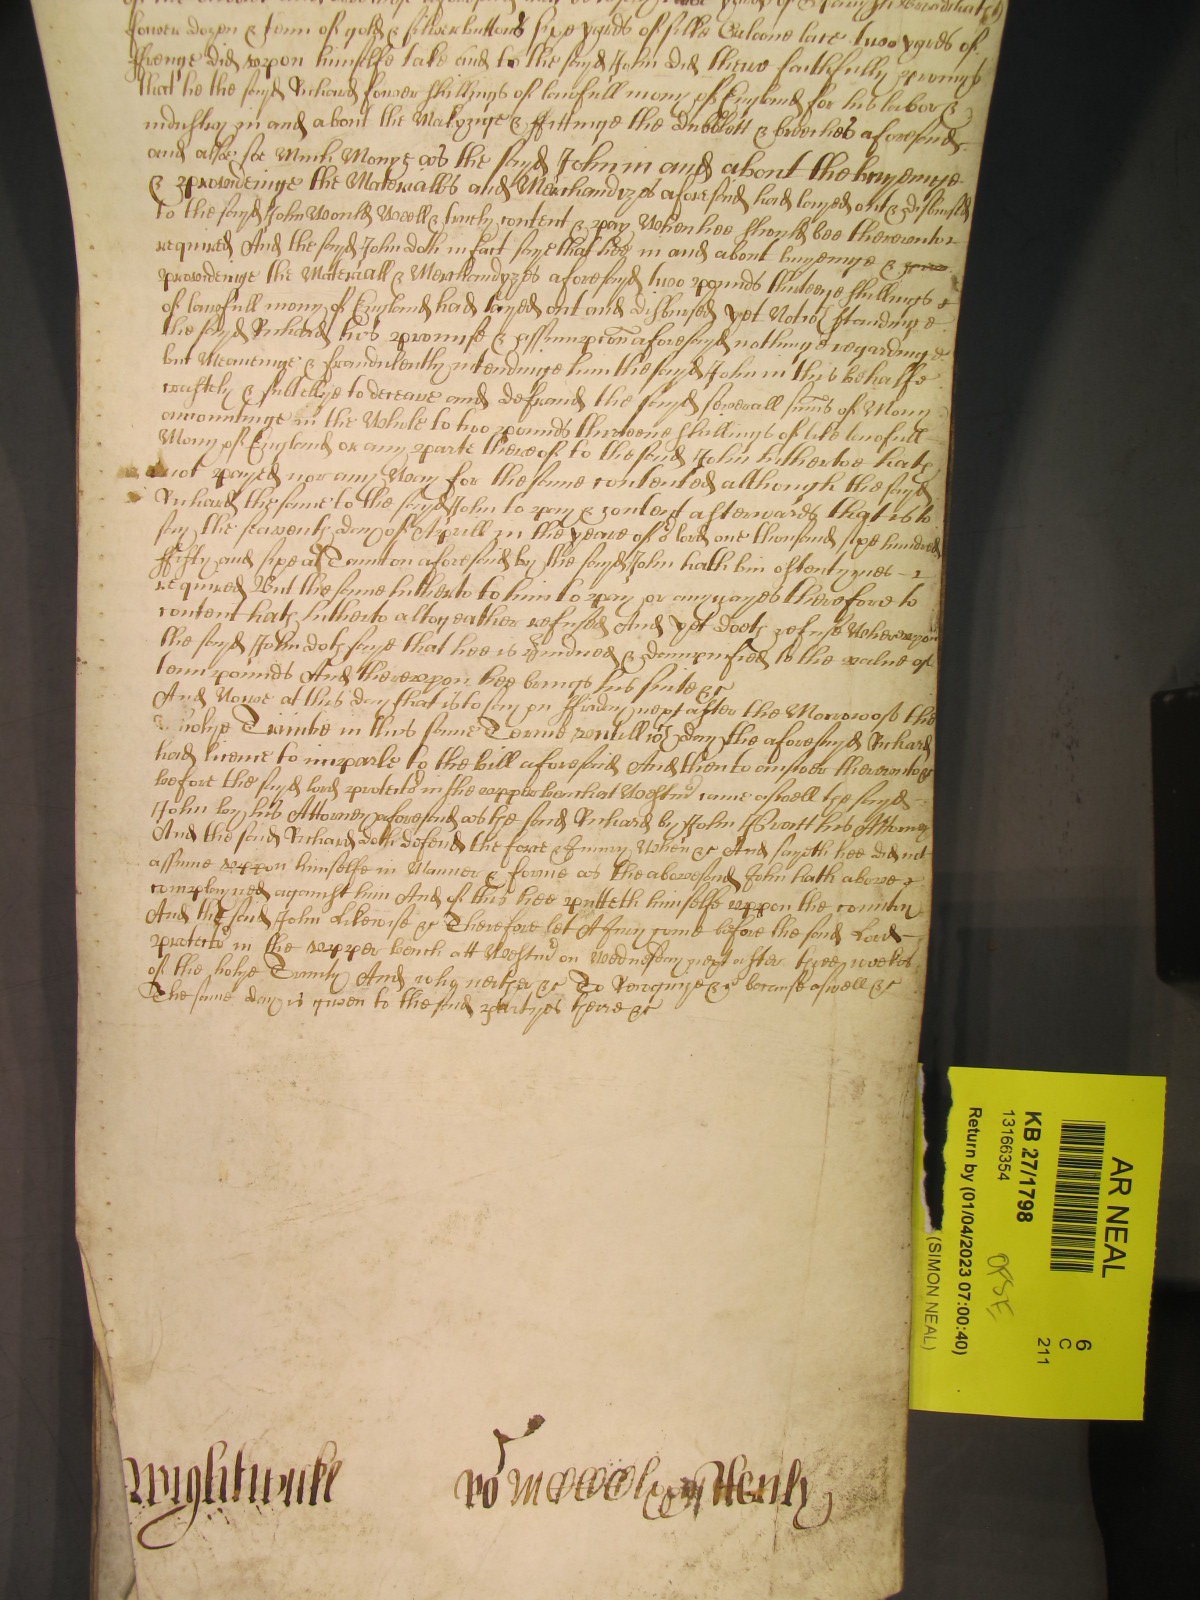 fower dozen & tenn of gold & silver buttons sixe yards of silke Galoone lace two yards of
ffrenge did uppon himselfe take and to the sayd John did then faithfully promyse
that he the sayd Richard fower shillings of lawfull mony of England for his labor &
industry in and about the Makynge & ffittinge the dubblett & breeches aforesaid
and alsoe soe Much Monye as the sayd John in and about the buyenge
& provideinge the Materialls and Merchandyzes aforesaid had layed out & disbursed
to the sayd John Would Well & truely content & pay When hee should bee thereunto
required And the sayd John doth in fact saye that hee in and about buyenge &
provideinge the Materiall & Merchandyzes aforesayd two pounds thirteene shillings
of lawfull mony of England had layed out and disbursed yet Notwthstandinge
the sayd Richard his promise & assumpcon aforesayd nothinge regardinge
but Meaneinge & fraudulently intendinge him the sayd John in this behalfe
craftely & subtellye to deceave and defraud the sayd severall sums of Mony
amountinge in the Whole to two pounds thirteene shillings of like lawfull
Mony of England or any parte thereof to the said John hithertoe hath
not payed nor any Way for the same contented although the sayd
Richard the same to the sayd John to pay & content afterwards that is to
say the seaventh day of Aprill in the yeare of or lord one thousand sixe hundred
ffifty and sixe att Taunton aforesaid by the sayd John hath bin oftentymes
required But the same hitherto to him to pay or anywayes therefore to
content hath hitherto altogeather refused And yet doeth refuse Whereuppon
the sayd John doth saye that hee is Iniured & dampnified to the value of
tenn pounds And thereuppon hee brings his suite &c
And Nowe at this day that is to say on ffriday next after the Morrow of the
holye Trinitie in this same Terme untill wch day the aforesayd Richard
had licence to imparle to the bill aforesaid And then to answer thereunto &c
before the sayd lord protector in the upper bench at Westmr came aswell the sayd
John by his Attorney aforesaid as the said Richard by John his Attorney
And the said Richard doth defend the force & Iniury When &c And sayeth hee did not
assume uppon himselfe in Manner & forme as the abovesaid John hath above
complayned against him And of this hee putteth himselfe uppon the countrey
And the said John Likewise &c Therefore let A Jury come before the said Lord
protector in the upper bench att Westmr on Wednesday next after three weeks
of the holye Trinity And who neither &c To Recognise &c because aswell &c
The same day is given to the said partyes there &c
Wightwicke
AR NEAL
KB 27/1798
13166354
Return by (01/04/2023 07:00:40)
(SIMON NEAL)
6
C
211